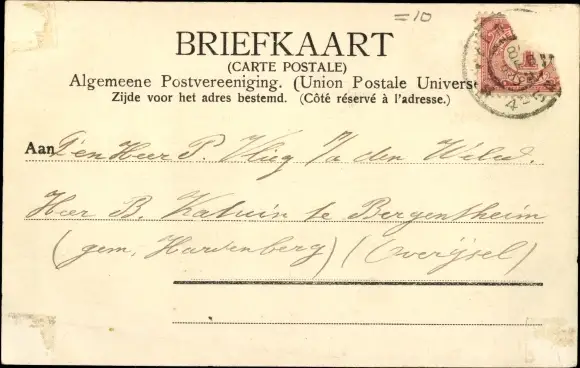 =10
BRIEFKAART
(CARTE POSTALE)
Algemeene Postvereeniging. (Union Postale Univers
Zijde voor het adres bestemd. (Côté réservé à l'adresse.)
Aan Den Heer P. Vlieg p/a den Weled.
Heer B. Katuin te Bergentheim
(gem. Hardenberg) (Overijsel)